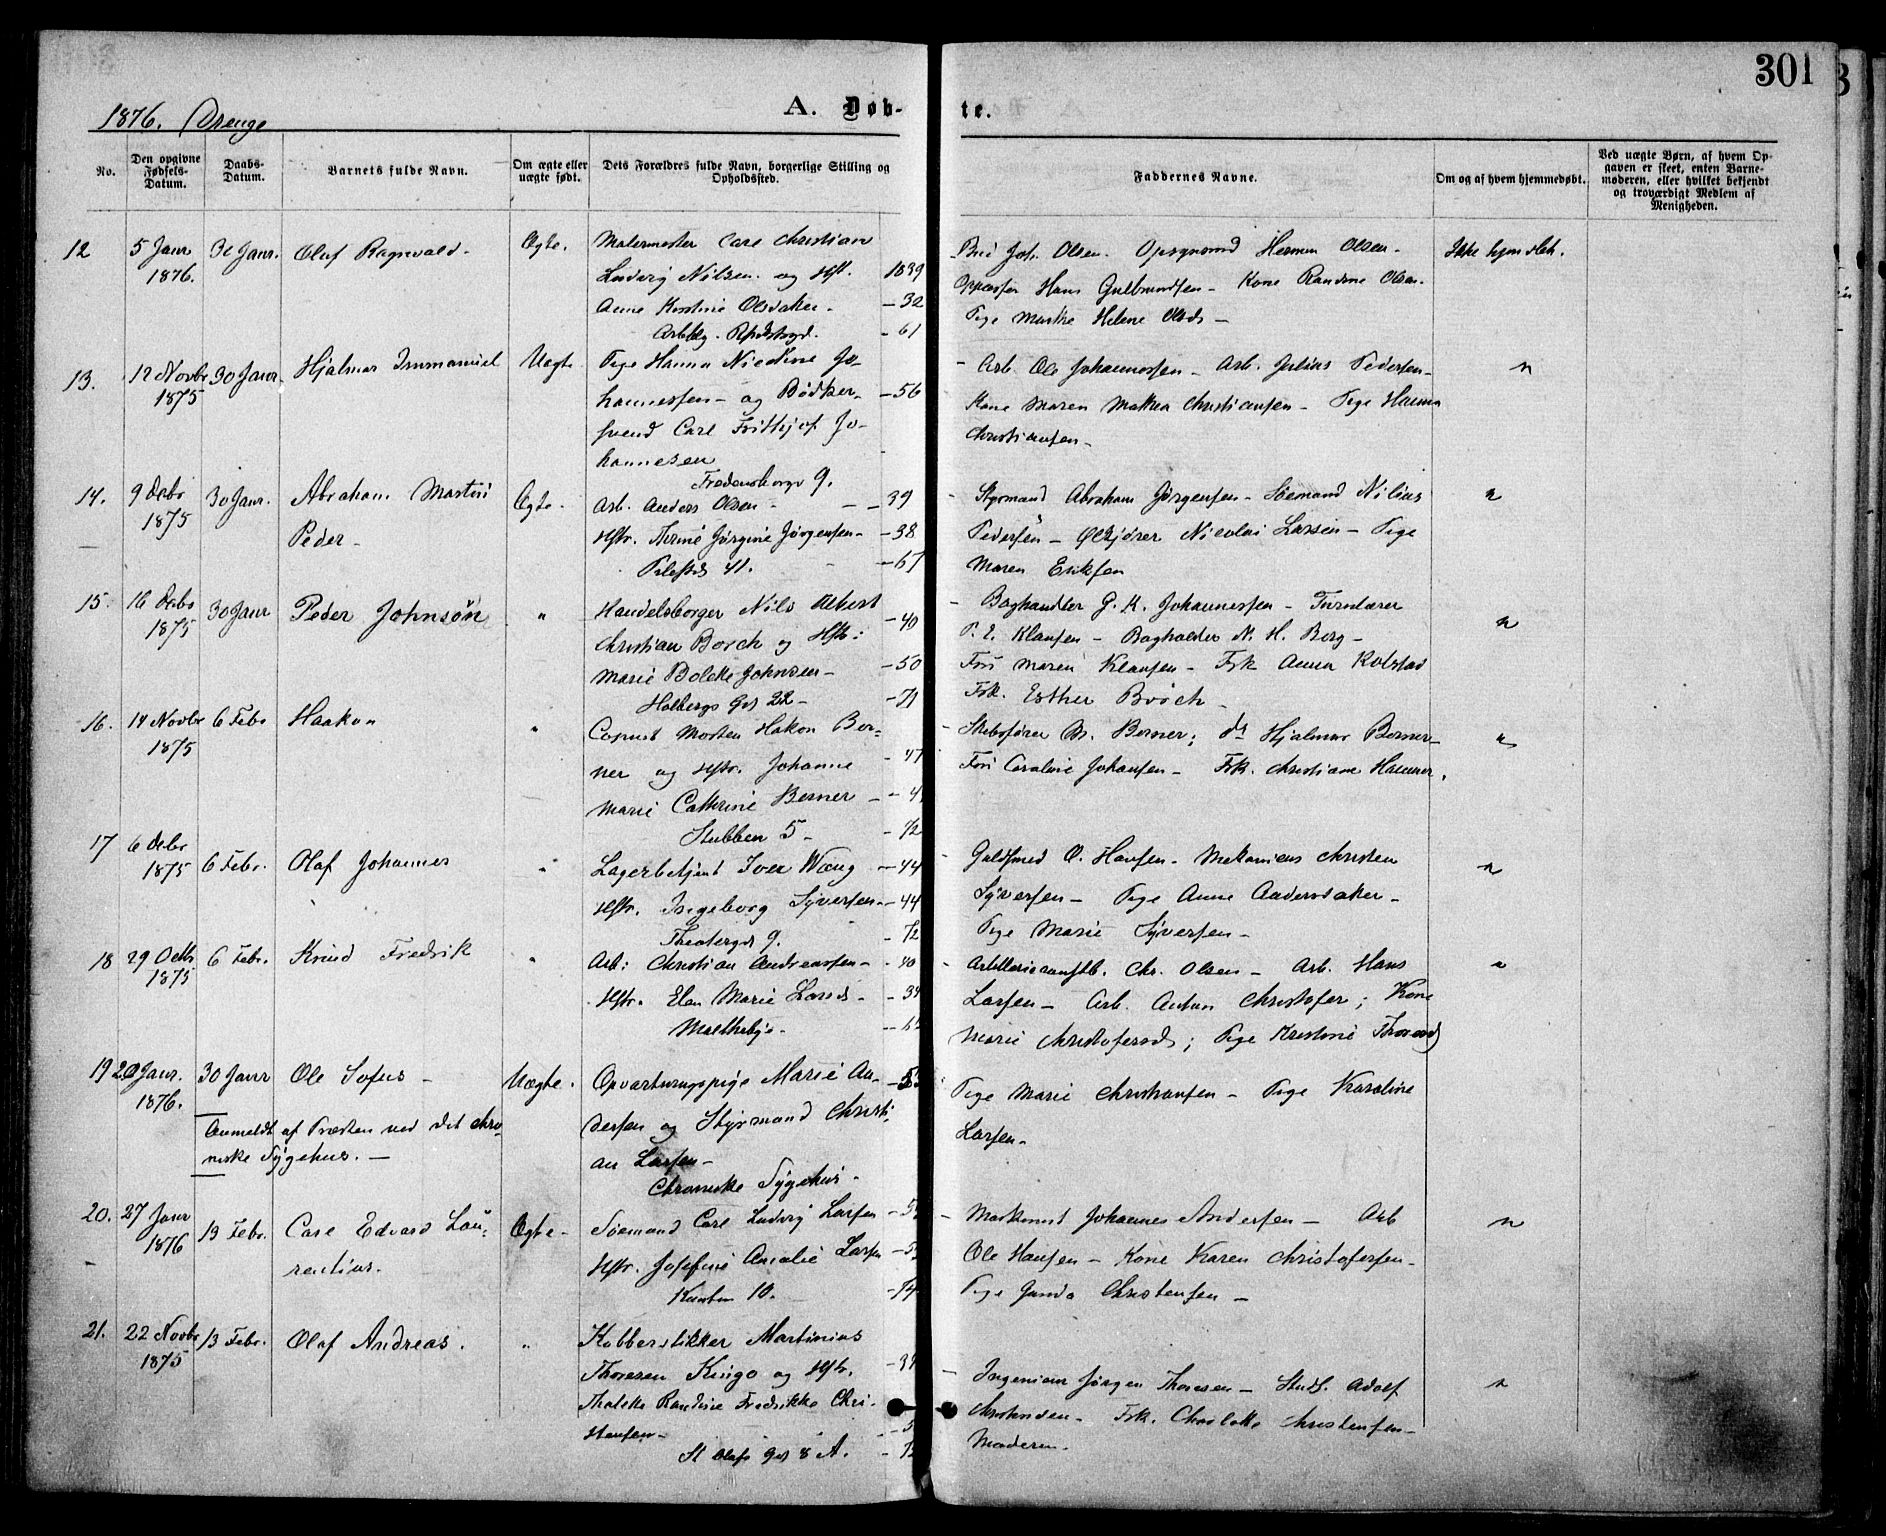 301
1876. Drenge
A. Døb-
te.
No.
Den opgivne
Fødsels-
Datum.
Daabs-
Datum.
Barnets fulde Navn.
Om ægte eller
uægte født.
Dets Forældres fulde Navn, borgerlige Stilling og
Opholdssted.
Faddernes Navne.
Om og af hvem hjemmedøbt.
Ved uægte Børn, af hvem Op-
gaven er skeet, enten Barne-
moderen, eller hvilket bekjendt
og troværdigt Medlem af
Menigheden.
12 5 Janr 30 Janr. Olaf Ragnvald. Ægte. Malermester Carl Christian
1876. Ludvig Nilsen og Hst. 1839
Anne Kirstine Olsdatter. -32
-61
Joh. Olsen. Herman Olsen. Ikke hjemdøbt.
Hans Gulbrandsen - Kone Randine Olsen.
Pige Marthe Helene Olsd -
13. 12 Novbr 30 Janr Hjalmar Immanuel Uægte Pige Hanna Nicoline Jo-
1875 hannessen - og Bødker- -56
svend Carl Frithjof Jo-
hannesen
Fredensborgv 9.
- Arb. Ole Johannessen - Arb. Julius Pedersen - "
Kone Maren Mathea Christiansen - Pige Hanna
Christiansen -
14. 9 Debr 30 Janr. Abraham Martin Ægte. Arb. Anders Olsen - -39
1875 Peder - Hstr. Jørgine Jørgensen - -38
Pilestrd 41. -67
- Styrmand Abraham Jørgensen - Sømand Nilius "
Pedersen - Ølkjører Nicolai Larsen - Pige
Maren Eriksen
15. 16 Debr 30 Janr Peder Johnsøn " Handelsborger Nils Albert -40
1875 Christian Borch og Hstr:
Marie Bolette Johnsen - -50
Holbergs Gd 22 - -71
- Boghandler G. K. Johannessen - Turnlærer
P. E. Klausen - Bogholder N. H. Borg - "
Fru Maren Klausen - Frk Anna Rolstad
Frk. Esther Broch -
16. 14 Novbr 6 Febr Haakon " Copist Morten Hakon Ber-
1875 ner og Hstr. Johanne -47
Marie Cathrine Berner -
Stubben 5 - -72
- Skibsfører M. Berner; ds Hjalmar Berner - "
Fru Caroline Johansen - Frk. Christiane Hammer.
17 6 Debr 6 Febr. Olaf Johannes " Lagerbetjent Iver Wang -44
1875 Hstr. Ingeborg Syversen - -44
Theatergd 9. -72
- Guldsmed O. Hansen - Mekanicus Christen "
Syversen - Pige Anne Andersdatter -
Pige Marie Syversen -
18 29 Octb 6 Febr. Knud Fredrik " Arb: Christian Andreassen - -40
1875 Hstr. Elen Marie Larsd. -
Maltheby. -
- Chr. Olsen - Arb. Hans "
Larsen - Arb. Anton Christofer; Kone
Marie Christofersd; Pige Kristine Thoresd
19 20 Janr. 30 Janr Ole Sofus - Uægte. Opvartningspige Marie An-
1876. dersen og Styrmand Christi-
an Larsen -
Chroniske Sygehus -
Anmeldt af Præsten ved det chro-
niske Sygehus. -
Pige Marie Christiansen - Pige Karoline
Larsen -
20. 27 Janr 13 Febr. Carl Edvard Lau- Ægte - Sømand Carl Ludvig Larsen
1876 rentius. Hstr. Josefine Amalie Larsen
10.
- Johannes Andersen - Arb "
Ole Hansen - Kone Karen Christofersen -
Pige Gunda Christensen -
21. 22 Novbr 13 Febr. Olaf Andreas. " Kobberstikker Martinius
1875 Thoresen Kingo og Hstr.
Thalette Randine Fredrikke Chri-
stensen -
St Olafs Gd 8 A.
- Ingeniør Jørgen Thoresen - Stud. Adolf "
Christensen - Frk. Charlotte Christensen -
Moderen.